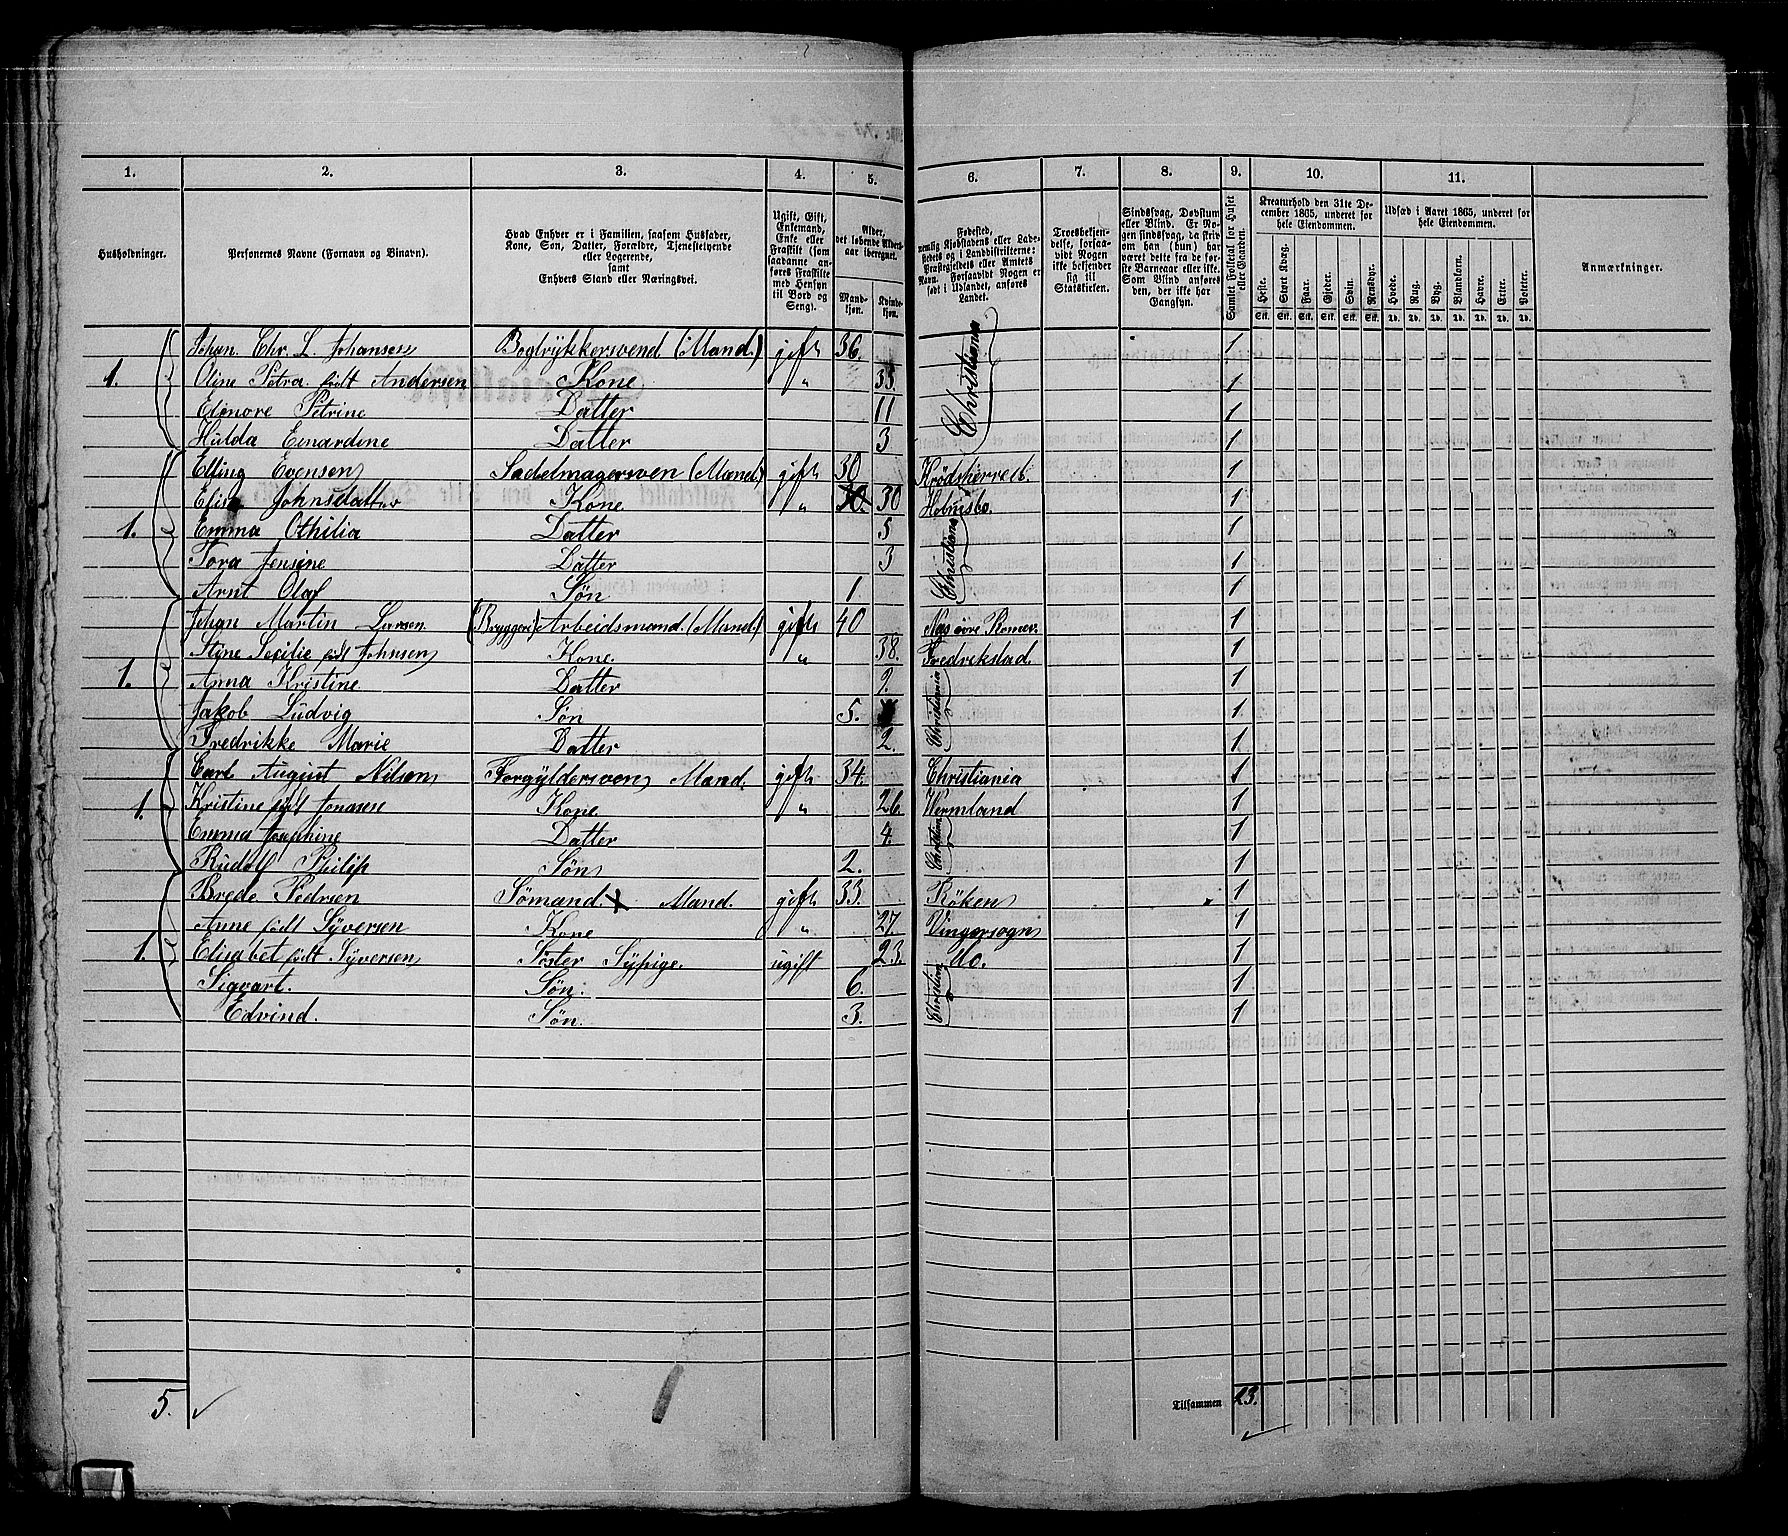 1. 2. 3. 4. 5. 6. 7. 8. 9. 10. 11.
Husholdninger.
Personernes Navne (Fornavn og Binavn).
Hvad Enhver er i Familien, saasom Husfader,
Kone, Søn, Datter, Forældre, Tjenestetyende
eller Logerende,
samt
Enhvers Stand eller Næringsvei.
Ugift, Gift,
Enkemand,
Enke eller
Fraskilt (som
saadanne an-
føres Fraskilte
med Hensyn
til Bord og
Seng).
Alder,
det løbende Alders-
aar iberegnet.
Mand-
kjøn.
Kvinde-
kjøn.
Fødested,
nemlig Kjøbstadens eller Lade-
stedets og i Landdistrikterne:
Præstegjeldets eller Amtets
Navn.
Forsaavidt Nogen er
født i Udlandet, anføres
Landet.
Troesbekjen-
delse, forsaa-
vidt Nogen
ikke bekjender
sig til
Statskirken.
Sindssvag, Døvstum
eller Blind. Er No-
gen sindssvag, da skriv
om han (hun) har
været dette fra de før-
ste Barneaar eller ikke.
Som Blind anføres
den, der ikke har
Gangsyn.
Samlet Folketal for Huset
eller Gaarden.
Kreaturhold den 31te De-
cember 1865, underet for
hele Eiendommen.
Heste. Stort Kvæg. Faar. Gjeder. Svin. Rensdyr.
Stk. Stk. Stk. Stk. Stk. Stk.
Udsæd i Aaret 1865, underet for
hele Eiendommen.
Hvede. Rug. Byg. Blandkorn. Havre. Erter. Poteter.
Td. Td. Td. Td. Td. Td. Td.
Anmærkninger.
Johan. Chr. L. Johansen Bogtrykkersvend (Mand.) gift 36. Christiania 1
1. Oline Petra født Andersen Kone " 33. 1
Elenore Petrine Datter 11 1
Hulda Einardine Datter 3 1
Elling Evensen Sadelmagersven (Mand) gift 30 Krödsherred. 1
Elise Johnsdatter Kone " 30 Holmsbo. 1
1. Emma Othilia Datter 5 Christiania 1
Tora Jensine Datter 3 1
Arnt Olaf Søn 1. 1
Johan Martin Larsen (Bryggeri) Arbeidsmand. (Mand.) gift 40 Næs övre Romer. 1
Signe Secilie født Johnsen Kone. " 38. Fredrikstad. 1
1. Anna Kristine Datter 9. Christiania 1
Jakob Ludvig Søn 5. 1
Fredrikke Marie Datter 2. 1
Carl August Nilsen Forgyldersven Mand. gift 34. Christiania 1
1. Kristine født Jonasen Kone. " 26. Wermland 1
Emma Josephine Datter 4. Christiania 1
Rudolf Philip Søn 2. 1
Brede Pedersen Sömand Mand. gift 33. Röken 1
Anne født Syversen Kone " 27. Vingersogn 1
1. Elisabet født Syversen Søster Sypige. ugift 23. Do. 1
Sigvart. Søn. 6. Christiania 1
Edvind. Søn. 3. 1
5.
Tilsammen 23.